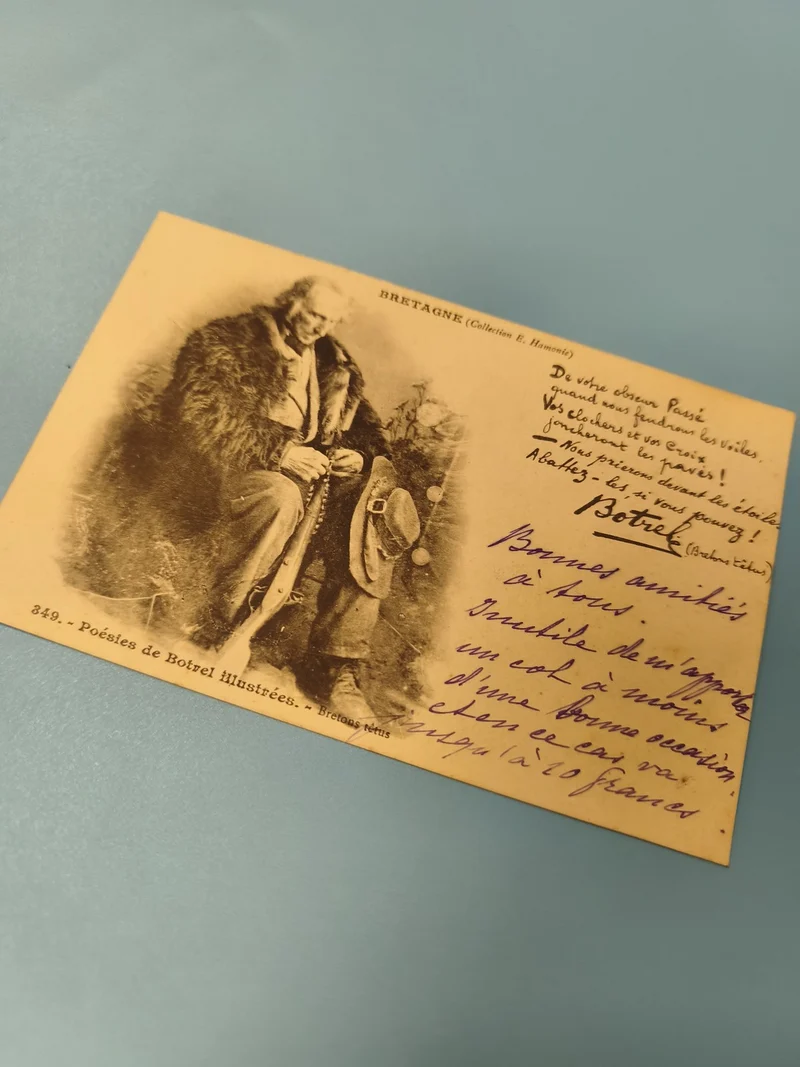 BRETAGNE (Collection E. Hamonic)
De votre obscur Passé
quand nous fendrons les voiles,
Vos clochers et vos Croix
joncheront les pavés !
— Nous prierons devant les étoiles
Abattez-les, si vous pouvez !
Botrel
(Bretons têtus)
Bonnes amitiés
à tous.
Inutile de m'apporter
un col à moins
d'une bonne occasion
et en ce cas va
jusqu'à 20 francs.
349. - Poésies de Botrel illustrées. - Bretons têtus